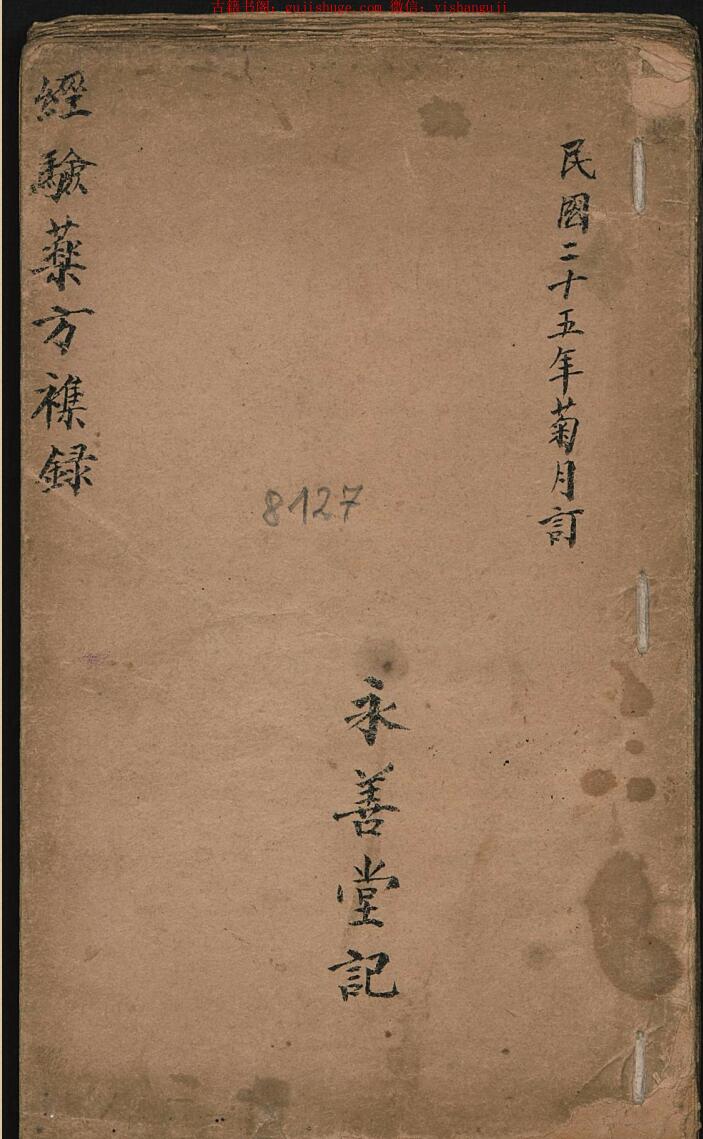 古籍书阁：gujishuge.com 微信：yishanguji
民國二十五年菊月訂
永善堂記
8127
經驗藥方襍録